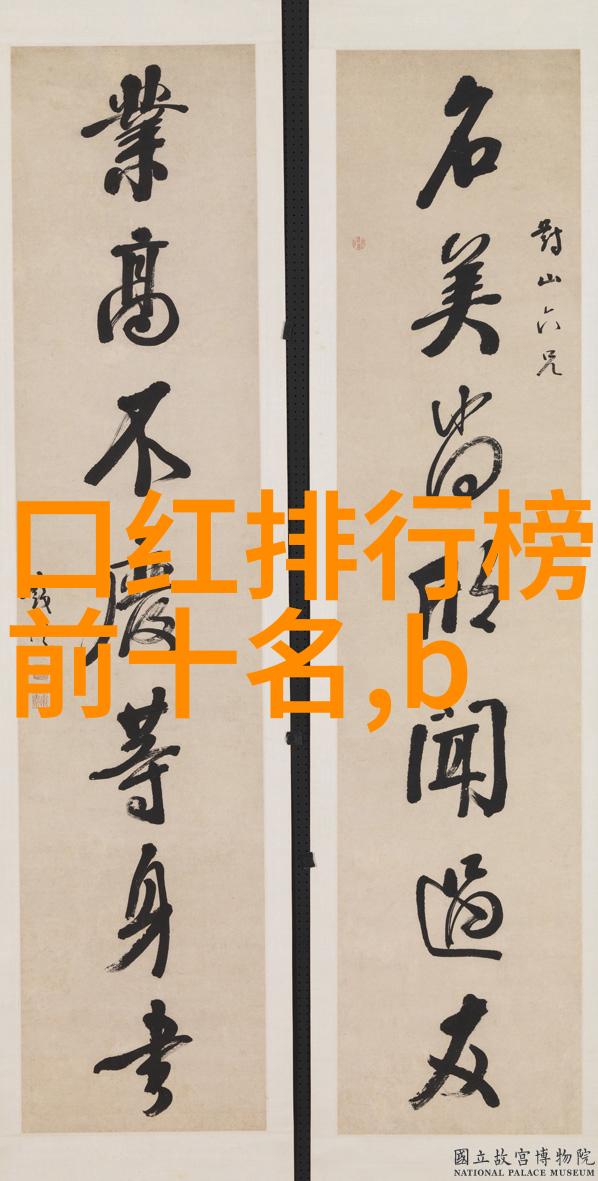 名美尚欣聞過友
對山六兄
業高不廢等身書
口红排行榜
前十名,b
國立故宮博物院
NATIONAL PALACE MUSEUM